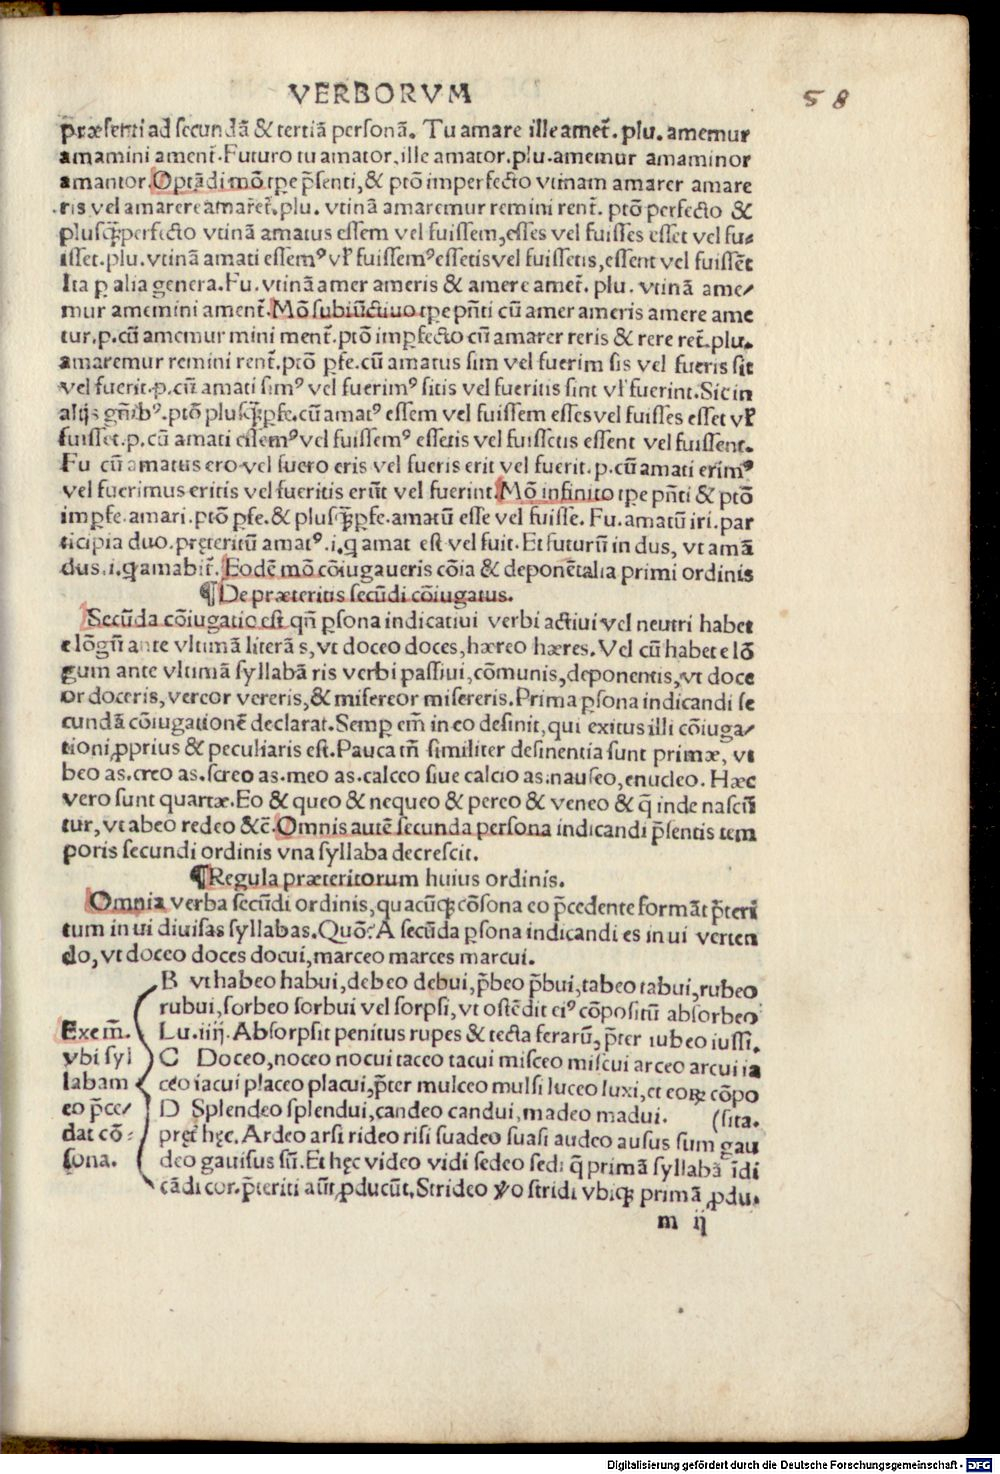 VERBORVM
58
præsenti ad secundã & tertiã personã. Tu amare ille amet̃. plu. amemur
amamini ament̃. Futuro tu amator, ille amator. plu. amemur amaminor
amantor. Optãdi mõ tꝑe p̃senti, & ptõ imperfecto vtinam amarer amare
ris vel amarere amaret̃. plu. vtinã amaremur remini rent̃. ptõ perfecto &
plusq̃ꝑfecto vtinã amatus essem vel fuissem, esses vel fuisses esset vel fu⸗
isset. plu. vtinã amati essemꝰ vł fuissemꝰ essetis vel fuissetis, essent vel fuissẽt
Ita ꝑ alia genera. Fu. vtinã amer ameris & amere amet̃. plu. vtinã ame/
mur amemini ament̃. Mõ subiũctiuo tꝑe pñti cũ amer ameris amere ame
tur. p. cũ amemur mini ment̃. ptõ imꝑfecto cũ amarer reris & rere ret̃. plu.
amaremur remini rent̃. ptõ ꝑfe. cũ amatus sim vel fuerim sis vel fueris sit
vel fuerit. p. cũ amati simꝰ vel fuerimꝰ sitis vel fueritis sint vł fuerint. Sic in
alijs gñibꝰ. ptõ plusq̃ꝑfe. cũ amatꝰ essem vel fuissem esses vel fuisses esset vł
fuisset. p. cũ amati essemꝰ vel fuissemꝰ essetis vel fuissetis essent vel fuissent.
Fu cũ amatus ero vel fuero eris vel fueris erit vel fuerit. p. cũ amati erimꝰ
vel fuerimus eritis vel fueritis erũt vel fuerint. Mõ infinito tꝑe pñti & ptõ
imꝑfe. amari. ptõ ꝑfe. & plusq̃ꝑfe. amatũ esse vel fuisse. Fu. amatũ iri. par
ticipia duo. pręteritũ amatꝰ. i. q amat est vel fuit. Et futurũ in dus, vt amã
dus. i. q amabit̃. Eodẽ mõ cõiugaueris cõia & deponẽtalia primi ordinis
¶ De præteritis secũdi cõiugatus.
Secũda cõiugatio est qñ ꝑsona indicatiui verbi actiui vel neutri habet
e lõgũ ante vltimã literã s, vt doceo doces, hæreo hæres. Vel cũ habet e lõ
gum ante vltimã syllabã ris verbi passiui, cõmunis, deponentis, vt doce
or doceris, vereor vereris, & misereor misereris. Prima ꝑsona indicandi se
cundã cõiugationẽ declarat. Semꝑ em̃ in eo desinit, qui exitus illi cõiuga/
tioni ꝓprius & peculiaris est. Pauca tñ similiter desinentia sunt primæ, vt
beo as. creo as. screo as. meo as. calceo siue calcio as. nauseo, enucleo. Hæc
vero sunt quartæ. Eo & queo & nequeo & pereo & veneo & q̃ inde nascũ
tur, vt abeo redeo &c̃. Omnis autẽ secunda persona indicandi p̃sentis tem
poris secundi ordinis vna syllaba decrescit.
¶ Regula præteritorum huius ordinis.
Omnia verba secũdi ordinis, quacũqꝫ cõsona eo p̃cedente formãt p̃teri
tum in ui diuisas syllabas. Quõ? A secũda ꝑsona indicandi es in ui verten
do, vt doceo doces docui, marceo marces marcui.
Exem̃.
vbi syl
labam
eo p̃ce/
dat cõ⸗
sona.
B vt habeo habui, debeo debui, p̃beo p̃bui, tabeo tabui, rubeo
rubui, sorbeo sorbui vel sorpsi, vt ostẽdit eiꝰ cõpositũ absorbeo
Lu. iiij. Absorpsit penitus rupes & tecta ferarũ, p̃ter iubeo iussi.
C Doceo, noceo nocui taceo tacui misceo miscui arceo arcui ia
ceo iacui placeo placui, p̃ter mulceo mulsi luceo luxi, et eoꝝ cõpo
D Splendeo splendui, candeo candui, madeo madui. (sita.
pręt̃ hęc. Ardeo arsi rideo risi suadeo suasi audeo ausus sum gau
deo gauisus sũ. Et hęc video vidi sedeo sedi q̃ primã syllabã ĩdi
cãdi cor. p̃teriti aũt ꝓducũt. Strideo ỽo stridi vbiqꝫ primã ꝓdu.
m ij
Digitalisierung gefördert durch die Deutsche Forschungsgemeinschaft - DFG